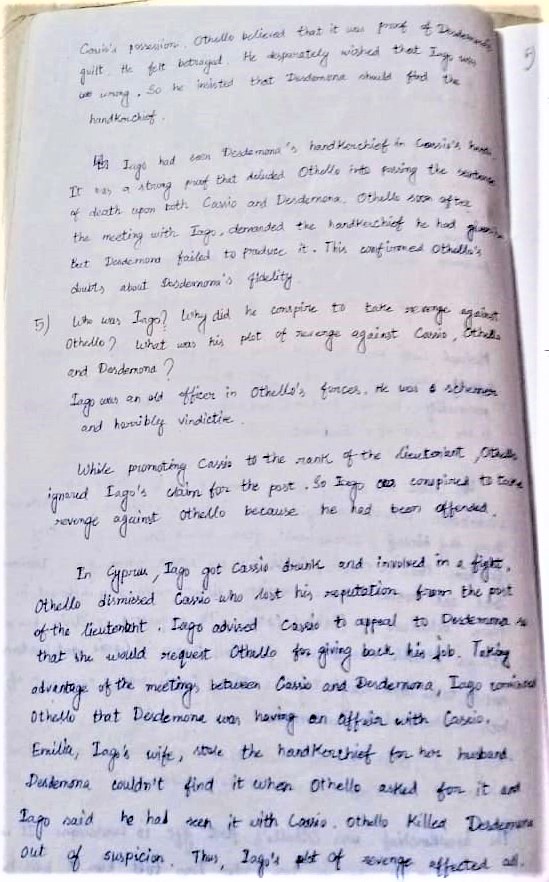 Cassio's possession. Othello believed that it was proof of Desdemona's
guilt. He felt betrayed. He desperately wished that Iago was
wrong. So he insisted that Desdemona should find the
handkerchief.
Iago had seen Desdemona's handkerchief in Cassio's hands.
It was a strong proof that deluded Othello into passing the sentence
of death upon both Cassio and Desdemona. Othello soon after
the meeting with Iago, demanded the handkerchief he had given
But Desdemona failed to produce it. This confirmed Othello's
doubts about Desdemona's fidelity.
5) Who was Iago? Why did he conspire to take revenge against
Othello? What was his plot of revenge against Cassio, Othello
and Desdemona?
Iago was an old officer in Othello's forces. He was a schemer
and horribly vindictive.
While promoting Cassio to the rank of the lieutenant, Othello
ignored Iago's claim for the post. So Iago conspired to take
revenge against Othello because he had been offended.
In Cyprus, Iago got Cassio drunk and involved in a fight.
Othello dismissed Cassio who lost his reputation from the post
of the lieutenant. Iago advised Cassio to appeal to Desdemona so
that she would request Othello for giving back his job. Taking
advantage of the meetings between Cassio and Desdemona, Iago convinced
Othello that Desdemona was having an affair with Cassio.
Emilia, Iago's wife, stole the handkerchief for her husband.
Desdemona couldn't find it when Othello asked for it and
Iago said he had seen it with Cassio. Othello killed Desdemona
out of suspicion. Thus, Iago's plot of revenge affected all.
5)